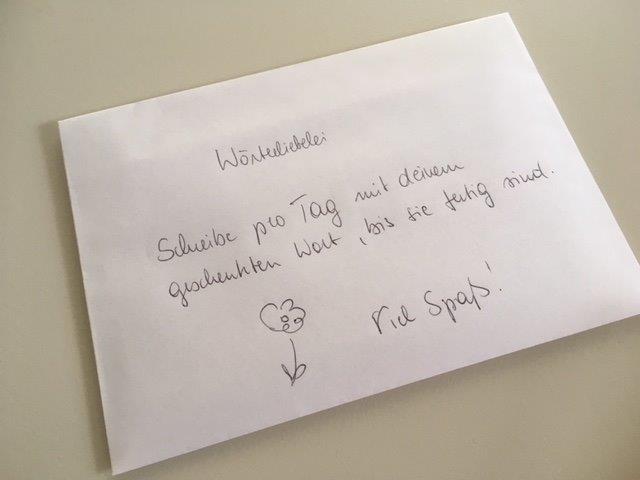 Wörterliebelei
Schreibe pro Tag mit deinem
geschenkten Wort, bis sie fertig sind.
Viel Spaß!